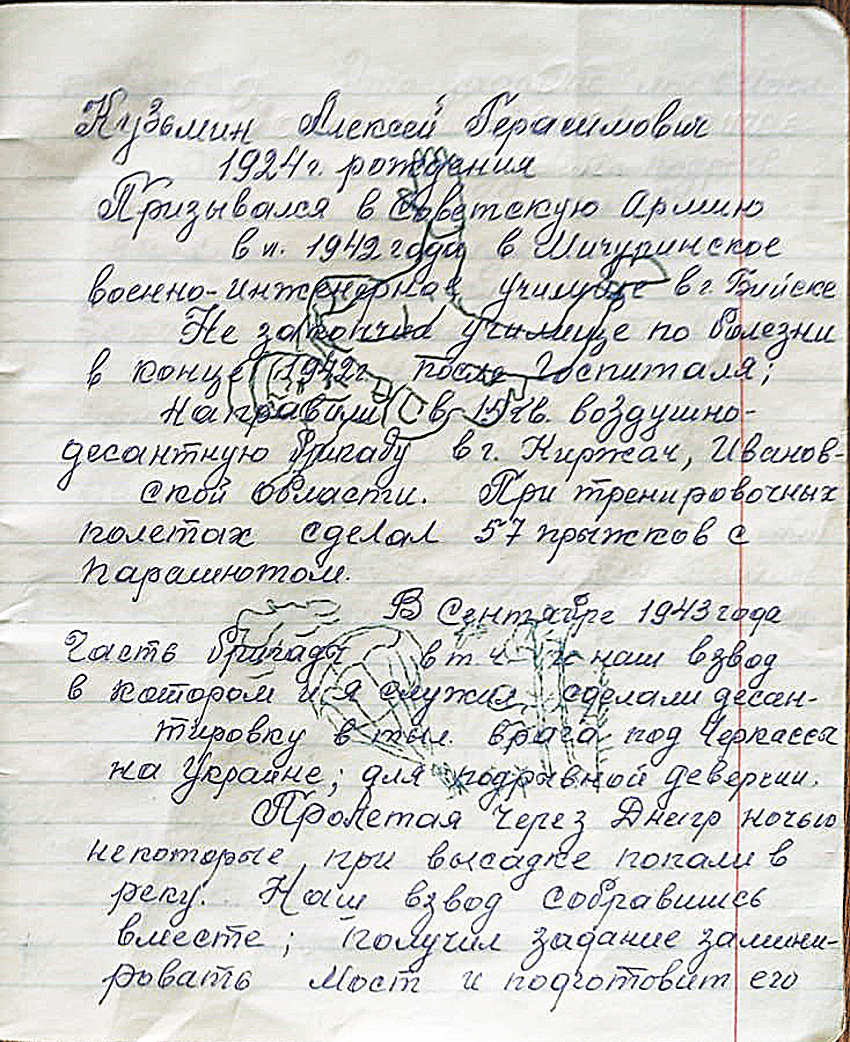 Кузьмин Алексей Герасимович
1924 г. рождения
Призывался в Советскую Армию
в и. 1942 года в Мичуринское
военно-инженерное училище в г Бийске
Не закончил училище по болезни
в конце 1942г. после госпиталя;
Направили в 15 гв. воздушно-
десантную бригаду в г. Киржач, Иванов-
ской области. При тренировочных
полетах сделал 57 прыжков с
парашютом.
В Сентябре 1943 года
Часть бригады в т. ч. и наш взвод
в котором и я служил, сделали десан-
тировку в тыл врага под Черкассы
на Украине; для подрывной деверсии.
Пролетая через Днепр ночью
некоторые при высадке попали в
реку. Наш взвод собравшись
вместе; получил задание замини-
ровать мост и подготовит его